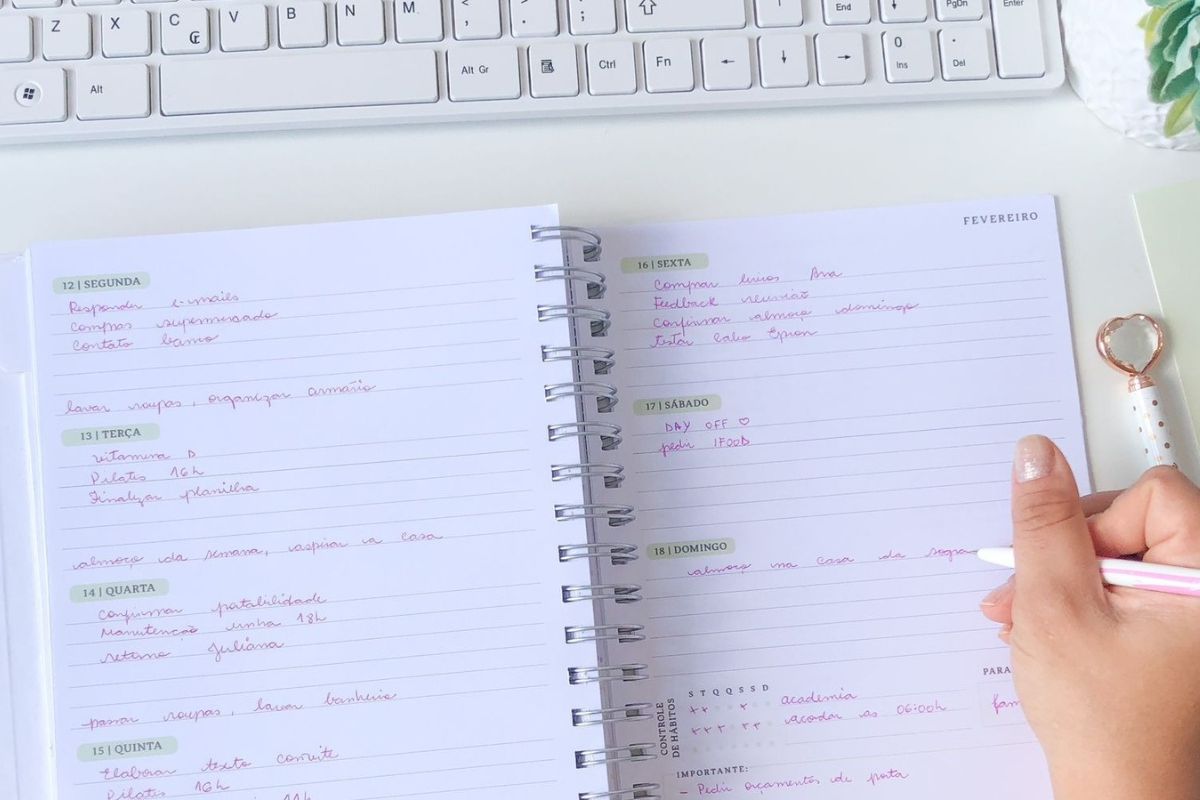 Z X C ₢ V B N M < , > . : ; End PgDn Enter
Alt Alt Gr Ctrl Fn ← ↓ → 0 Ins . Del
FEVEREIRO
12 | SEGUNDA
Responder e-mails
Compras supermercado
Contato
lavar roupas, organizar armário
13 | TERÇA
vitamina D
Pilates 16h
Finalizar planilha
almoço da semana, aspirar a casa
14 | QUARTA
Confirmar portabilidade
Manutenção unha 18h
retorno Juliana
passar roupas, lavar banheiro
15 | QUINTA
Elaborar texto convite
Pilates 16h
16 | SEXTA
Comprar livros Ana
Feedback reunião
Confirmar almoço domingo
testar cabo Epson
17 | SÁBADO
DAY OFF ♡
pedir IFOOD
18 | DOMINGO
almoço na casa da sogra
CONTROLE
DE HÁBITOS
S T Q Q S S D
academia
acordar as 06:00h
PARA
fam
IMPORTANTE:
- Pedir orçamentos de porta